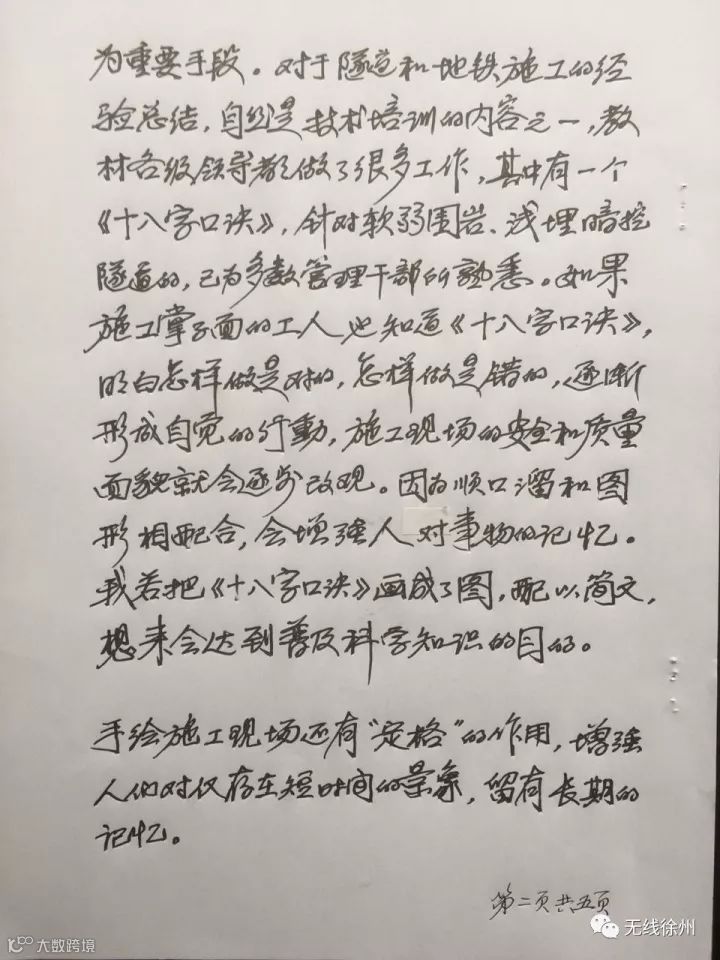 为重要手段。对于隧道和地铁施工的经
验总结，自然是技术培训的内容之一，教
材各级领导都做了很多工作，其中有一个
《十八字口诀》，针对软弱围岩、浅埋暗挖
隧道的，已为多数管理干部所熟悉。如果
施工掌子面的工人也知道《十八字口诀》，
明白怎样做是对的，怎样做是错的，逐渐
形成自觉的行動，施工现场的安全和质量
面貌就会逐步改观。因为顺口溜和图
形相配合，会增强人对事物的记忆。
我若把《十八字口诀》画成了图，配以简文，
想来会达到普及科学知识的目的。
手绘施工现场还有“定格”的作用，增强
人们对仅存在短时间的景象，留有长期的
记忆。
第二页共五页
无线徐州
大数跨境